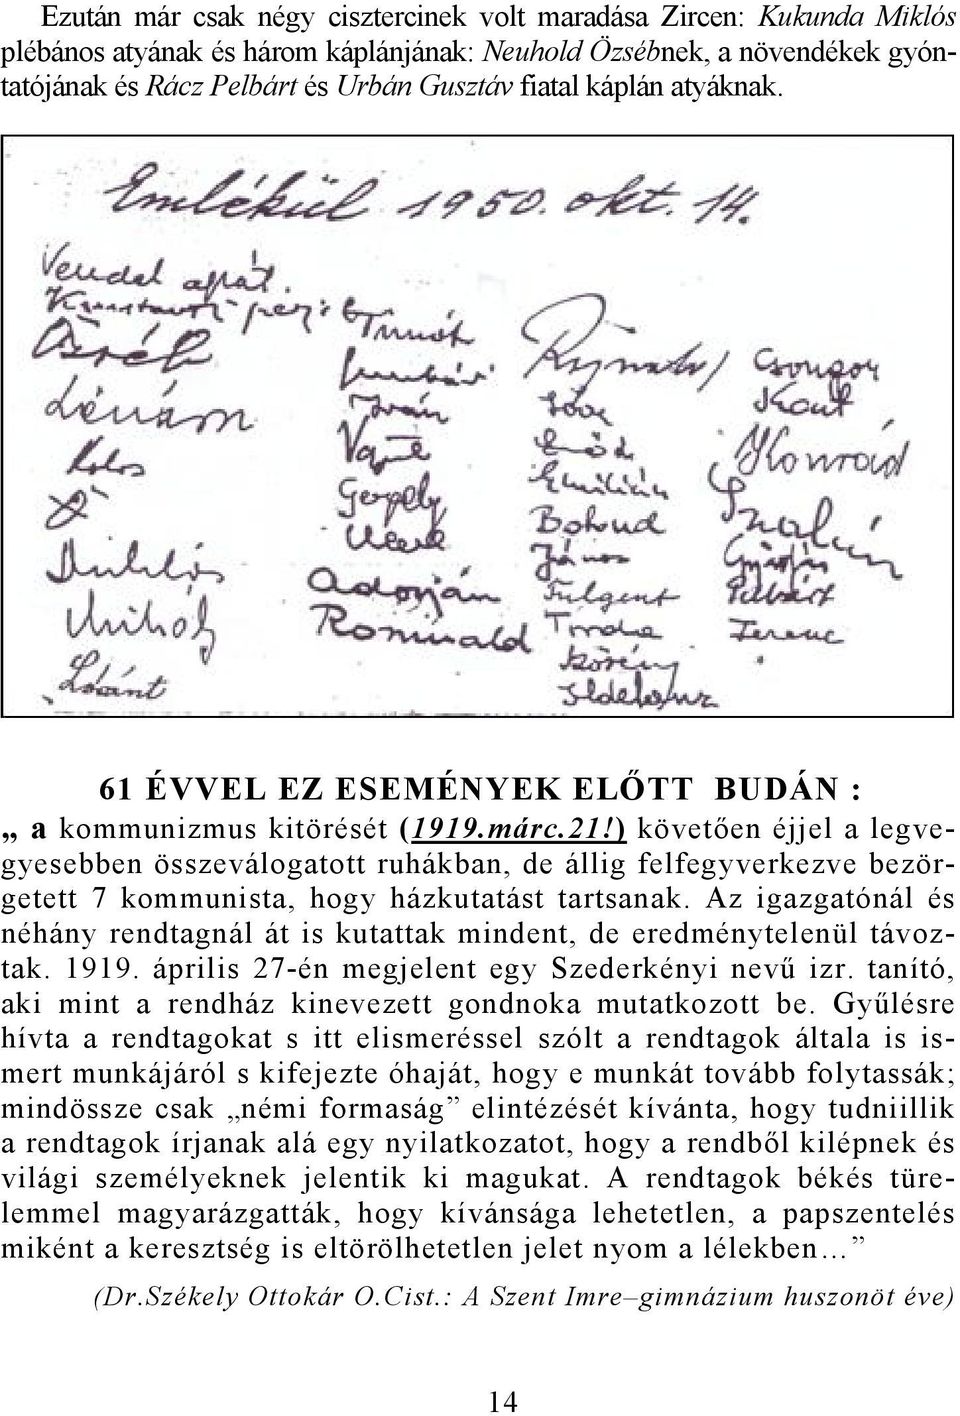 Ezután már csak négy cisztercinek volt maradása Zircen: Kukunda Miklós
plébános atyának és három káplánjának: Neuhold Özsébnek, a növendékek gyón-
tatójának és Rácz Pelbárt és Urbán Gusztáv fiatal káplán atyáknak.
Emlékül 1950. okt. 14.
Vendel apát.
Özséb
Lénárd
Kolos
Miklós
Mihály
Lóránt
Timót
Iván
Vajk
Gergely
Adorján
Romuald
Emilián
Botond
János
Fulgent
Törény
Ildefonz
Csongor
Konrád
Pelbárt
Ferenc
61 ÉVVEL EZ ESEMÉNYEK ELŐTT BUDÁN :
„ a kommunizmus kitörését (1919.márc.21!) követően éjjel a legve-
gyesebben összeválogatott ruhákban, de állig felfegyverkezve bezör-
getett 7 kommunista, hogy házkutatást tartsanak. Az igazgatónál és
néhány rendtagnál át is kutattak mindent, de eredménytelenül távoz-
tak. 1919. április 27-én megjelent egy Szederkényi nevű izr. tanító,
aki mint a rendház kinevezett gondnoka mutatkozott be. Gyűlésre
hívta a rendtagokat s itt elismeréssel szólt a rendtagok általa is is-
mert munkájáról s kifejezte óhaját, hogy e munkát tovább folytassák;
mindössze csak „némi formaság” elintézését kívánta, hogy tudniillik
a rendtagok írjanak alá egy nyilatkozatot, hogy a rendből kilépnek és
világi személyeknek jelentik ki magukat. A rendtagok békés türe-
lemmel magyarázgatták, hogy kívánsága lehetetlen, a papszentelés
miként a keresztség is eltörölhetetlen jelet nyom a lélekben…”
(Dr.Székely Ottokár O.Cist.: A Szent Imre–gimnázium huszonöt éve)
14